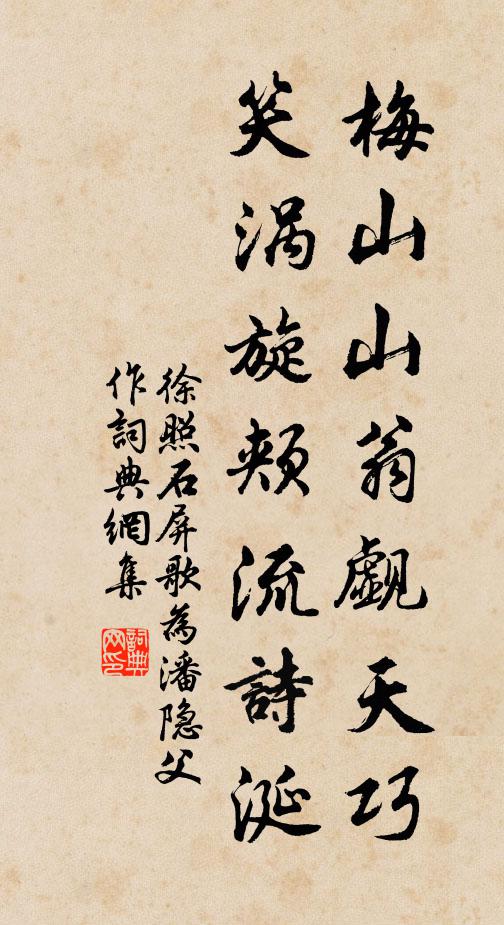 梅山山翁觑天巧
笑涡旋颊流詩涎
徐照石屏歌為潘隐父
作詞典網集
詞典网印